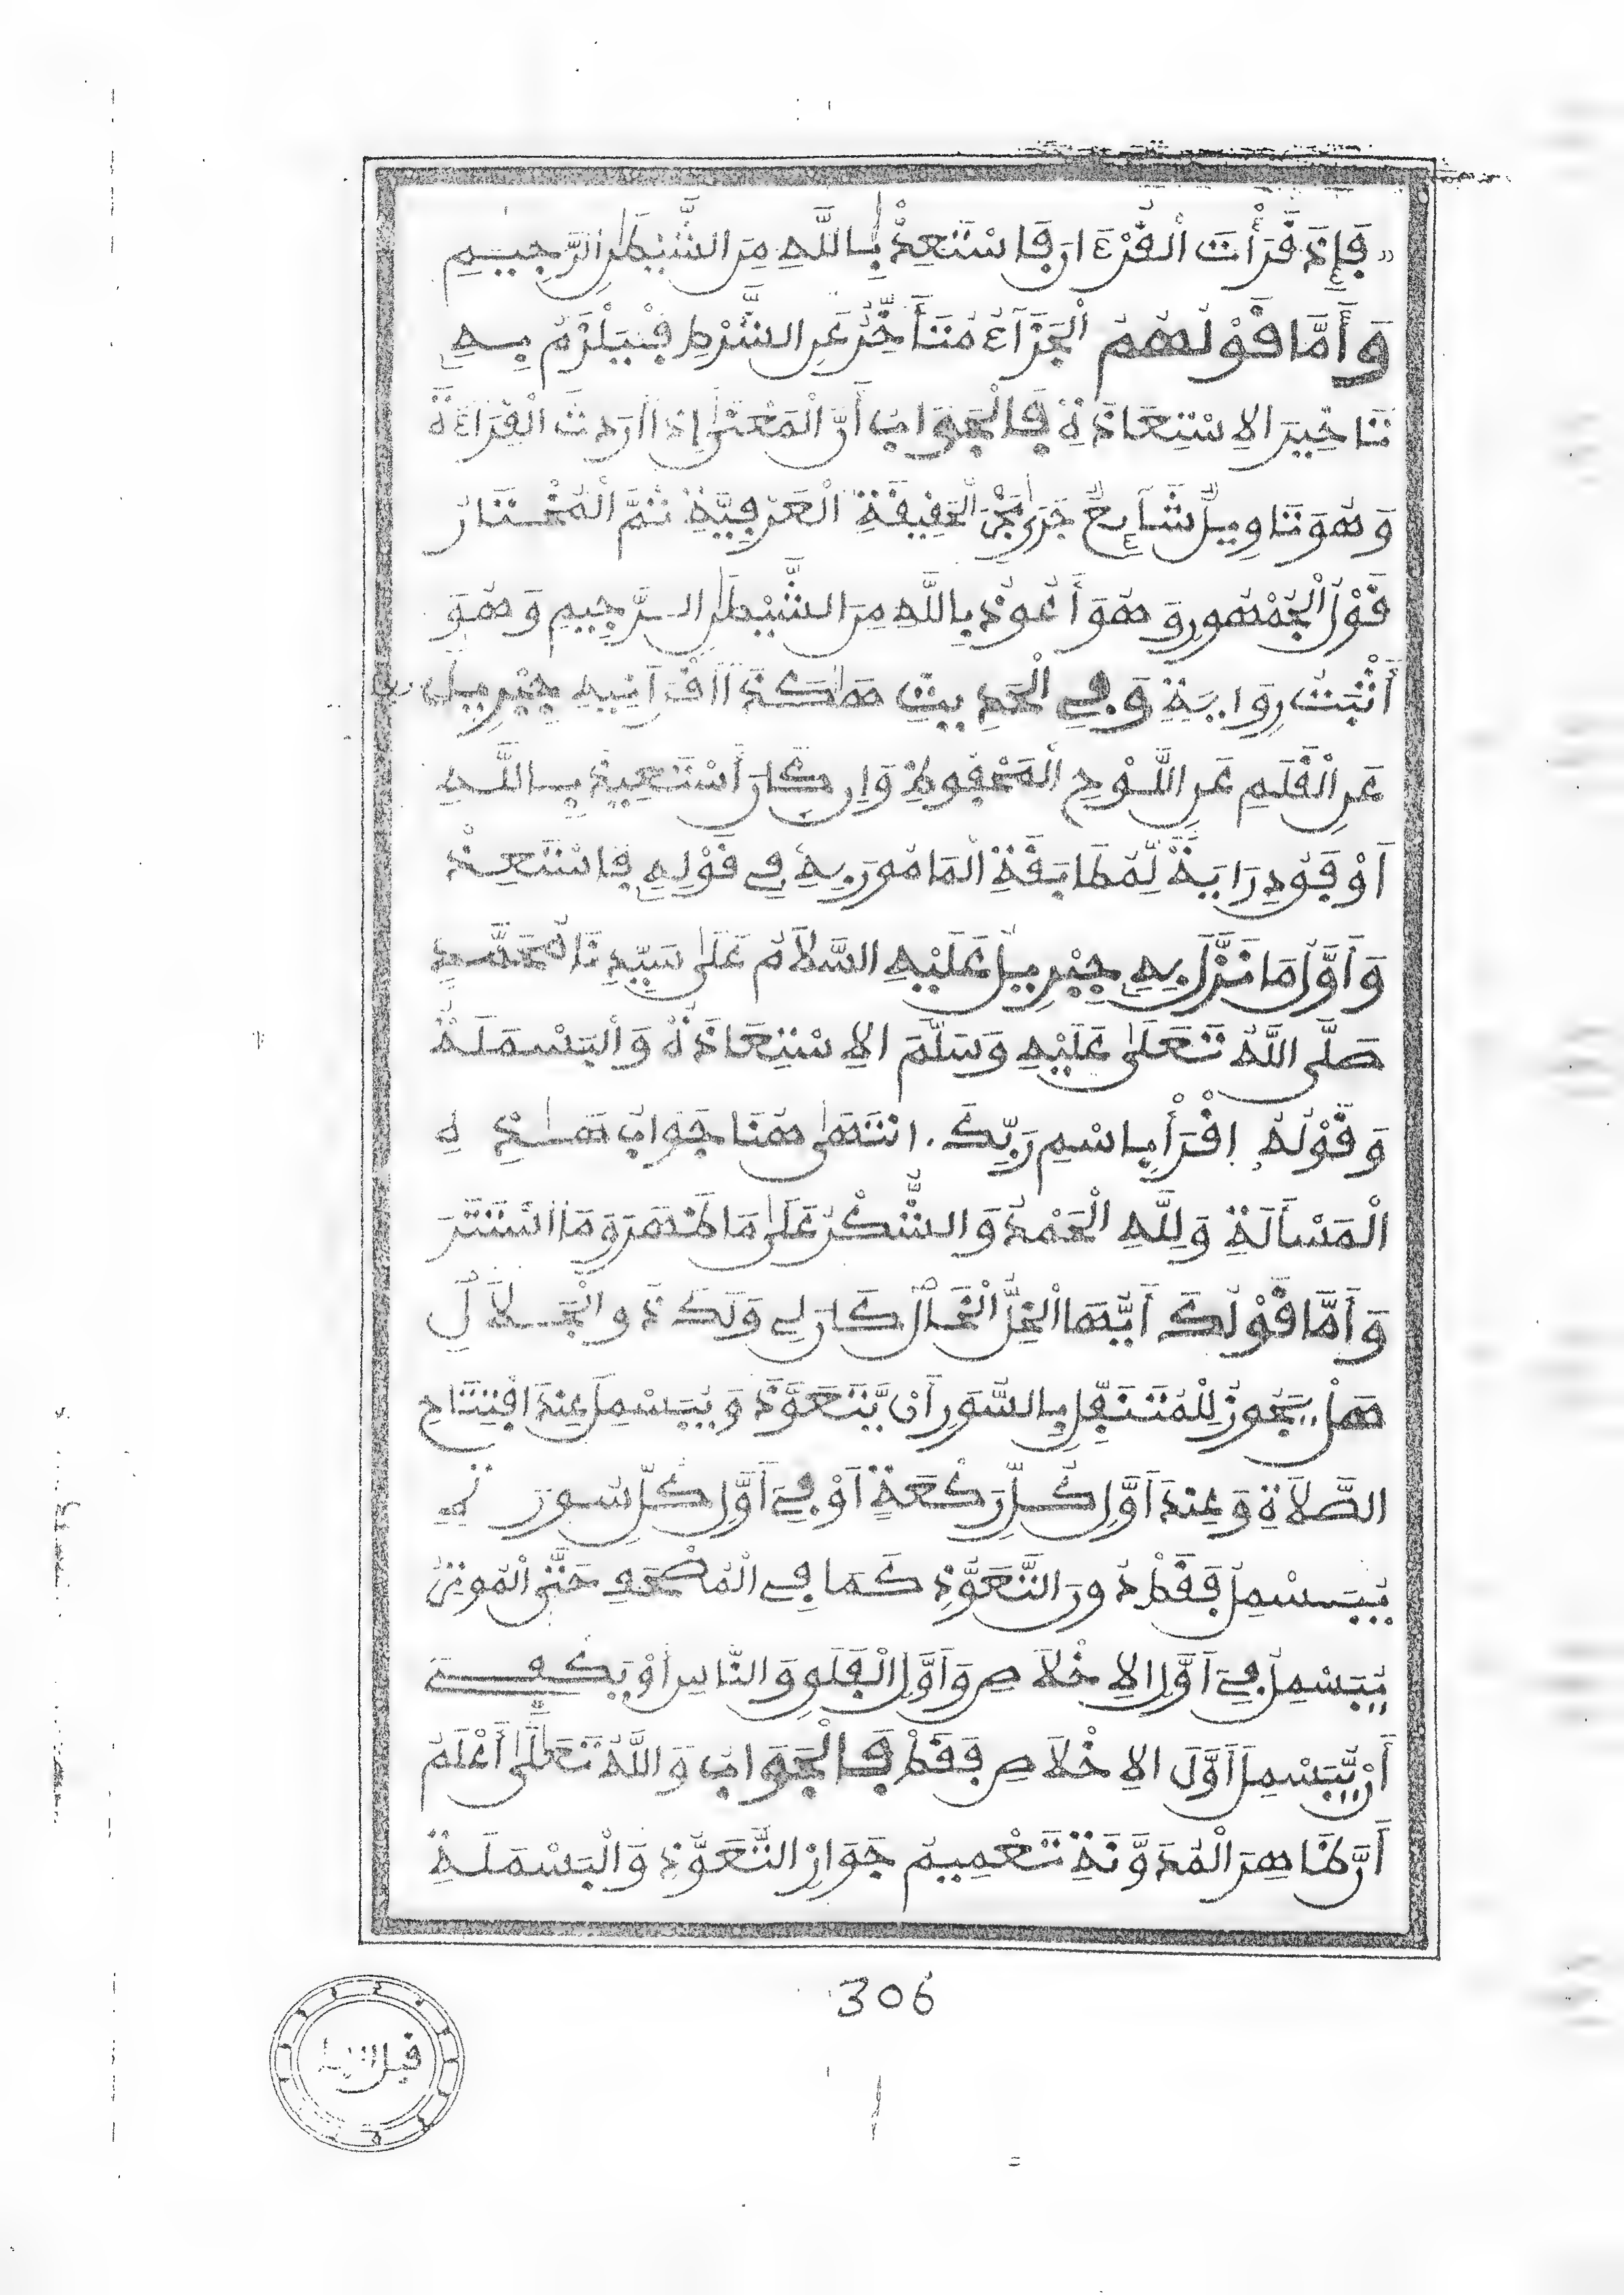 فَإِذَا قَرَأْتَ الْقُرْءَانَ فَاسْتَعِذْ بِاللَّهِ مِنَ الشَّيْطَٰنِ الرَّجِيمِ
وَأَمَّا قَوْلُهُمْ الْجَزَآءُ مُتَأَخِّرٌ عَنِ الشَّرْطِ فَيَلْزَمُ بِهِ
تَاخِيرَ الِاسْتِعَاذَةِ فَالْجَوَابُ أَنَّ الْمَعْنَىٰ إِذَا أَرَدتَّ الْقِرَاءَةَ
وَهُوَ تَاوِيلٌ شَآئِعٌ جَرَىٰ مَجْرَى الْحَقِيقَةِ الْعَرْفِيَّةِ ثُمَّ الْمُخْتَارُ
قَوْلُ الْجُمْهُورِ وَهُوَ أَعُوذُ بِاللَّهِ مِنَ الشَّيْطَٰنِ الرَّجِيمِ وَهُوَ
أَثْبَتُ رِوَايَةً وَفِي الْحَدِيثِ هَٰكَذَا أَقْرَأَنِيهِ جِبْرِيلُ
عَنِ الْقَلَمِ عَنِ اللَّوْحِ الْمَحْفُوظِ وَإِن كَانَ أَسْتَعِيذُ بِاللَّهِ
أَوْفَقُ دِرَايَةً لِّمُطَابَقَةِ الْمَامُورِ بِهِ فِي قَوْلِهِ فَاسْتَعِذْ
وَأَوَّلُ مَا نَزَّلَ بِهِ جِبْرِيلُ عَلَيْهِ السَّلَامُ عَلَىٰ سَيِّدِنَا مُحَمَّدٍ
صَلَّى اللَّهُ تَعَلَىٰ عَلَيْهِ وَسَلَّمَ الِاسْتِعَاذَةُ وَالْبَسْمَلَةُ
وَقَوْلُهُ اِقْرَأْ بِاسْمِ رَبِّكَ. انْتَهَىٰ هُنَا جَوَابُ هَٰذِهِ
الْمَسْأَلَةِ وَلِلَّهِ الْحَمْدُ وَالشُّكْرُ عَلَىٰ مَا ظَهَرَ وَمَا اسْتَتَرَ
وَأَمَّا قَوْلُكَ أَيُّهَا الْخِلُّ الْخَالُّ كَانَ لِي وَلَكَ ذُو الْجَلَالِ
هَلْ يَجُوزُ لِلْمُتَنَفِّلِ بِالسُّوَرِ أَن يَّتَعَوَّذَ وَيُبَسْمِلَ عِندَ افْتِتَاحِ
الصَّلَاةِ وَعِندَ أَوَّلِ كُلِّ رَكْعَةٍ أَوْ فِي أَوَّلِ كُلِّ سُورَةٍ
يُبَسْمِلُ فَقَطْ دُونَ التَّعَوُّذِ كَمَا فِي الْمُصْحَفِ حَتَّى الْمُوتِرُ
يُبَسْمِلُ فِي أَوَّلِ الِاخْلَاصِ وَأَوَّلِ الْفَلَقِ وَالنَّاسِ أَوْ يَكْفِي
أَن يُّبَسْمِلَ أَوَّلَ الِاخْلَاصِ فَقَطْ فَالْجَوَابُ وَاللَّهُ تَعَلَىٰ أَعْلَمُ
أَنَّ ظَاهِرَ الْمُدَوَّنَةِ تَعْمِيمُ جَوَازِ التَّعَوُّذِ وَالْبَسْمَلَةِ
306